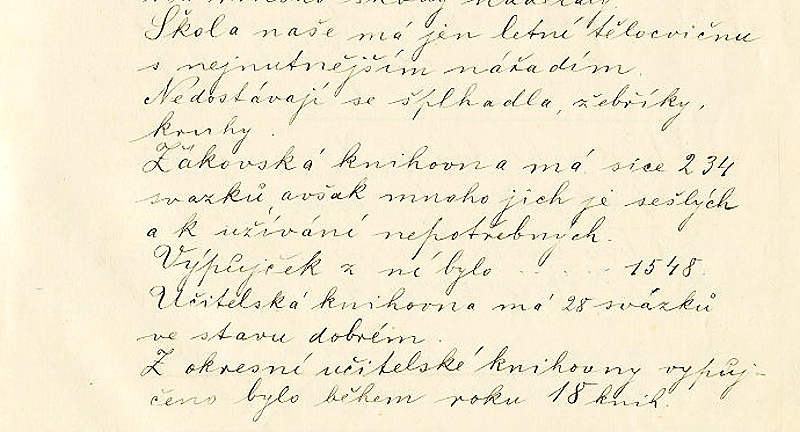 Škola naše má jen letní tělocvičnu
s nejnutnějším nářadím.
Nedostávají se šplhadla, žebříky,
kruhy.
Žákovská knihovna má sice 234
svazků, avšak mnoho jich je sešlých
a k užívání nepotřebných.
Výpujček z ní bylo . . . . . 1548.
Učitelská knihovna má 28 svázků
ve stavu dobrém.
Z okresní učitelské knihovny vypuj-
čeno bylo během roku 18 knih.